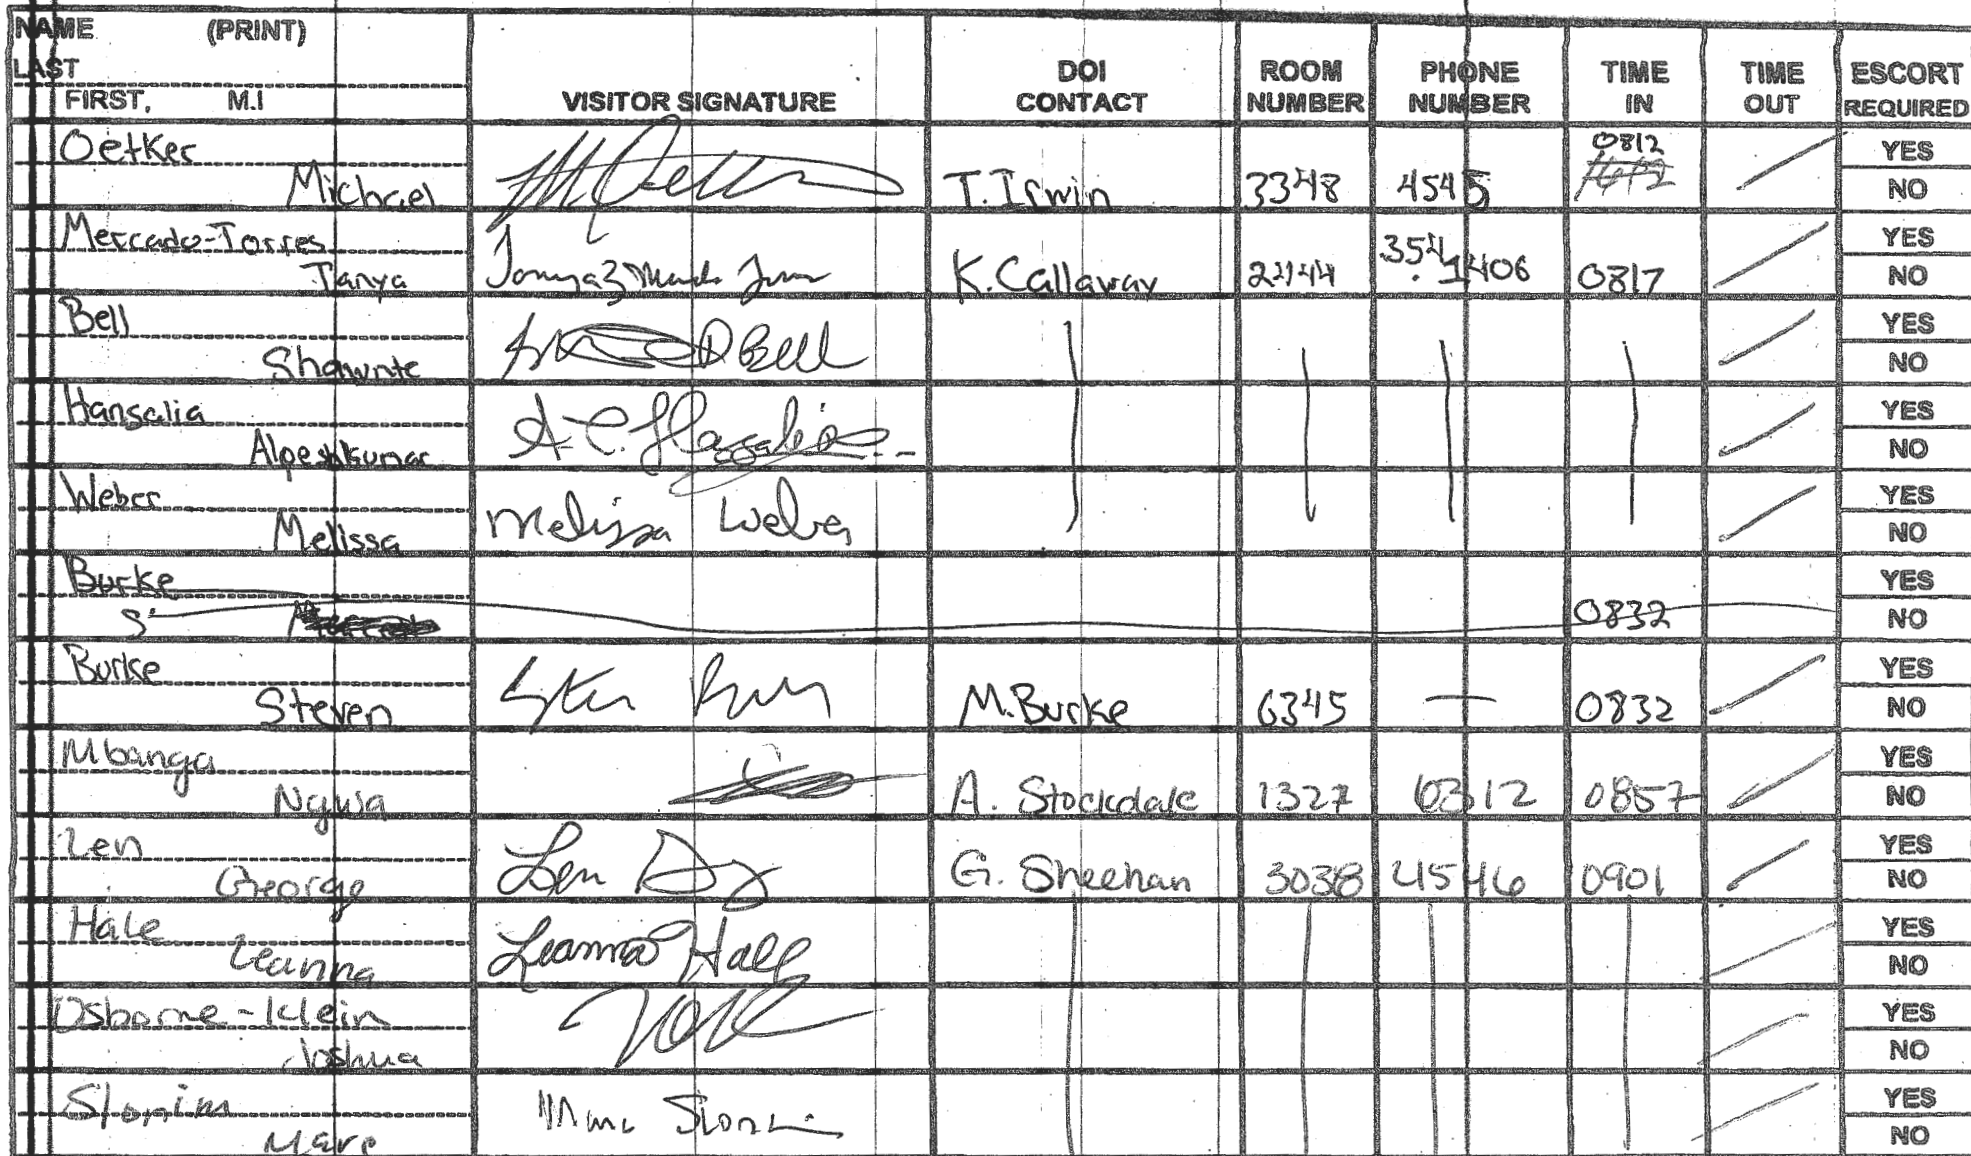 NAME (PRINT)
LAST
FIRST, M.I
VISITOR SIGNATURE
DOI CONTACT
ROOM NUMBER
PHONE NUMBER
TIME IN
TIME OUT
ESCORT REQUIRED
Oetker
Michael T. Irwin 3348 4545 0812
YES
NO
Mercado-Torres
Tanya K. Callaway 2444 354-1406 0817
YES
NO
Bell
Shawnte Bell
YES
NO
Hansalia
Alpeshkumar
YES
NO
Weber
Melissa Melissa Weber
YES
NO
Burke
S 0832
YES
NO
Burke
Steven M. Burke 6345 — 0832
YES
NO
Mbanga
Ngwa A. Stockdale 1327 0312 0857
YES
NO
Len
George Len G. Sheehan 3038 4546 0901
YES
NO
Hale
Leanna Leanna Hale
YES
NO
Osborne-Klein
Joshua
YES
NO
Slonim
Marc Marc Slonim
YES
NO